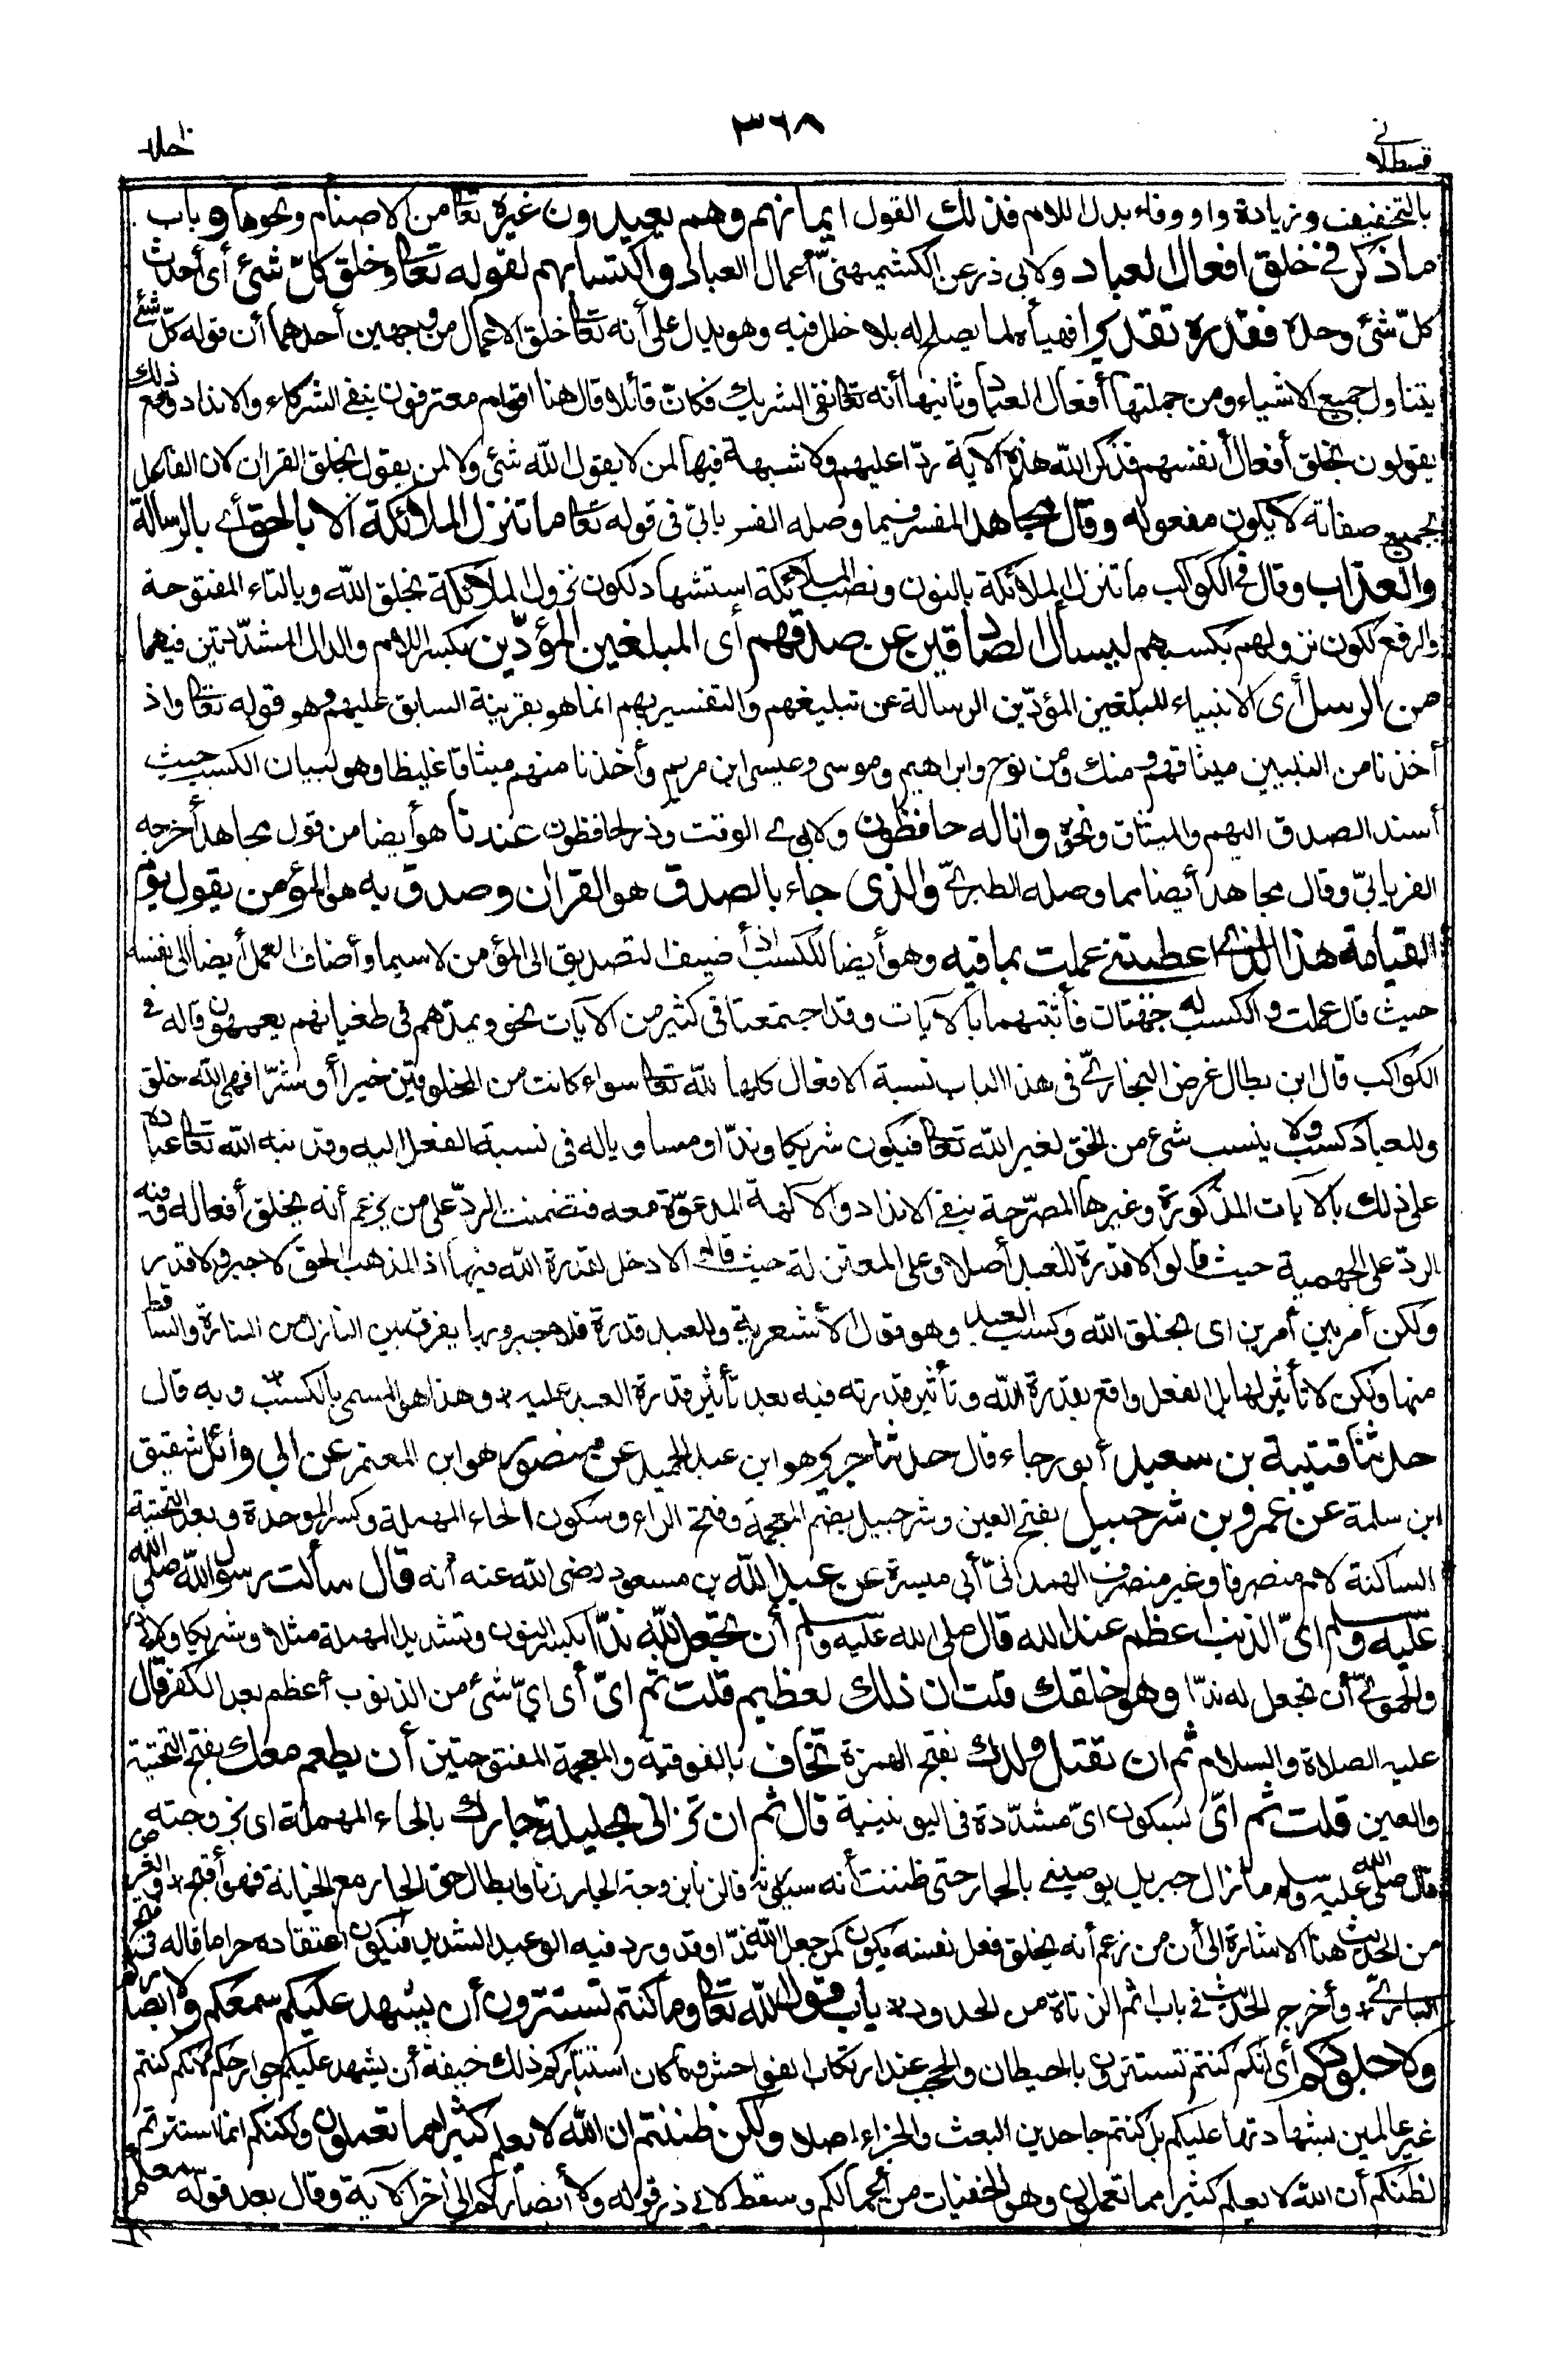 قسطلانى
٣٦٨
جلد ١٠
بالتخفيف وزيادة واو وفاء بدل اللام فذلك القول ايمانهم وهم يعبدون غيره تعالى من الاصنام ونحوها وباب
ما ذكر فى خلق افعال العباد ولابى ذر عن الكشميهنىّ أعمال العباد واكتسابهم لقوله تعالى وخلق كلّ شئ أى أحدث
كلّ شئ وحده فقدّره تقديرا فهيأه لما يصلح له بلا خلل فيه وهو يدل على أنه تعالى خلق الاعمال من وجهين أحدهما أن قوله كلّ شئ
يتناول جميع الاشياء ومن جملتها أفعال العباد وثانيها أنه تعالى نفى الشريك فكانّ قائلا قال هنا اقوام معترفون بنفى الشركاء والانداد ومع ذلك
يقولون بخلق أفعال أنفسهم فذكر الله هذه الآية ردّا عليهم ولا شبهة فيها لمن لا يقول الله شئ ولا لمن يقول بخلق القران لان الفاعل
بجميع صفاته لا يكون مفعوله وقال مجاهد المفسر فيما وصله الفريابىّ فى قوله تعالى ما تنزل الملائكة الا بالحق أى بالرسالة
والعذاب وقال فى الكواكب ما تنزل الملائكة بالنون ونصب الملائكة استشهاد لكون نزول الملائكة بخلق الله وبالتاء المفتوحة
والرفع لكون نزولهم بكسبهم ليسأل الصادقين عن صدقهم أى المبلغين المؤدّين بكسر اللام والدال المشدّدتين فيهما
من الرسل أى الانبياء المبلغين المؤدّين الرسالة عن تبليغهم والتفسير بهم انما هو بقرينة السابق عليهم وهو قوله تعالى واذ
أخذنا من النبيين ميثاقهم ومنك ومن نوح وابراهيم وموسى وعيسى ابن مريم وأخذنا منهم ميثاقا غليظا وهو لبيان الكسب حيث
أسند الصدق اليهم والميثاق ونحوه وانا له حافظون ولابى الوقت وذر لحافظون عندنا هو أيضا من قول مجاهد أخرجه
الفريابىّ وقال مجاهد أيضا مما وصله الطبرىّ والذى جاء بالصدق هو القران وصدق به هو المؤمن يقول يوم
القيامة هذا الذى اعطيتنى عملت بما فيه وهو أيضا للكسب اذ أضيف التصديق الى المؤمن لا سيما وأضاف العمل أيضا الى نفسه
حيث قال عملت والكسب له جهتان فأثبتهما بالآيات وقد اجتمعتا فى كثير من الآيات نحو ويمدّهم فى طغيانهم يعمهون قاله فى
الكواكب قال ابن بطال غرض البخارىّ فى هذا الباب نسبة الافعال كلها لله تعالى سواء كانت من المخلوقين خيرا أو شرّا فهى لله خلق
وللعباد كسب ولا ينسب شئ من الخلق لغير الله تعالى فيكون شريكا وندّا او مساويا له فى نسبة الفعل اليه وقد نبه الله تعالى عباده
على ذلك بالآيات المذكورة وغيرها المصرّحة بنفى الانداد والآلهة المدعوّة معه فتضمنت الردّ على من يزعم أنه يخلق أفعاله وفيه
الردّ على الجهمية حيث قالوا لا قدرة للعبد أصلا وعلى المعتزلة حيث قالوا لا دخل لقدرة الله فيها اذ المذهب الحق لا جبر ولا قدر
ولكن أمر بين أمرين اى بخلق الله وكسب العبد وهو قول الأشعرية وللعبد قدرة فلا جبر وبها يفرق بين النازل من المنارة والساقط
منها ولكن لا تأثير لها بل الفعل واقع بقدرة الله وتأثير قدرته فيه بعد تأثير قدرة العبد عليه * وهذا هو المسمى بالكسب * وبه قال
حدثنا قتيبة بن سعيد أبو رجاء قال حدثنا جرير هو ابن عبد الحميد عن منصور هو ابن المعتمر عن ابى وائل شقيق
ابن سلمة عن عمرو بن شرحبيل بفتح العين وشرحبيل بضم المعجمة وفتح الراء وسكون الحاء المهملة وكسر الموحدة وبعد التحتية
الساكنة لام منصرفا وغير منصرف الهمدانىّ أبى ميسرة عن عبد الله بن مسعود رضى الله عنه أنه قال سألت رسول الله صلى الله
عليه وسلم اىّ الذنب اعظم عند الله قال صلى الله عليه وسلم أن تجعل لله ندّا بكسر النون وتشديد المهملة مثلا وشريكا ولابى ذر
والحموىّ أن تجعل له ندّا وهو خلقك قلت ان ذلك لعظيم قلت ثم اىّ أى اىّ شئ من الذنوب أعظم بعد الكفر قال
عليه الصلاة والسلام ثم ان تقتل ولدك بفتح الهمزة تخاف بالفوقية والمعجمة المفتوحتين أن يطعم معك بفتح التحتية
والعين قلت ثم اىّ بسكون اىّ مشدّدة فى اليونينية قال ثم ان تزانى بحليلة جارك بالحاء المهملة اى بزوجته
قال صلى الله عليه وسلم ما زال جبريل يوصينى بالجار حتى ظننت أنه سيورّثه فالزنا بزوجة الجار زنا وابطال حق الجار مع الخيانة فهو أقبح * والغرض
من الحديث هنا الاشارة الى أن من زعم أنه يخلق فعل نفسه يكون كمن جعل لله ندّا وقد ورد فيه الوعيد الشديد فيكون اعتقاده حراما قاله فى فتح
البارى * وأخرج الحديث فى باب اثم الزناة من الحدود * باب قول الله تعالى وما كنتم تستترون أن يشهد عليكم سمعكم ولا ابصاركم
ولا جلودكم أى انكم كنتم تستترون بالحيطان والحجب عند ارتكاب الفواحش وما كان استتاركم ذلك خيفة أن يشهد عليكم جوارحكم لانكم كنتم
غير عالمين بشهادتها عليكم بل كنتم جاحدين البعث والجزاء اصلا ولكن ظننتم ان الله لا يعلم كثيرا مما تعملون ولكنكم انما استترتم
لظنكم أن الله لا يعلم كثيرا مما تعملون وهو الخفيات من أعمالكم وسقط لابى ذر قوله ولا أبصاركم الى اخر الآية وقال بعد قوله سمعكم